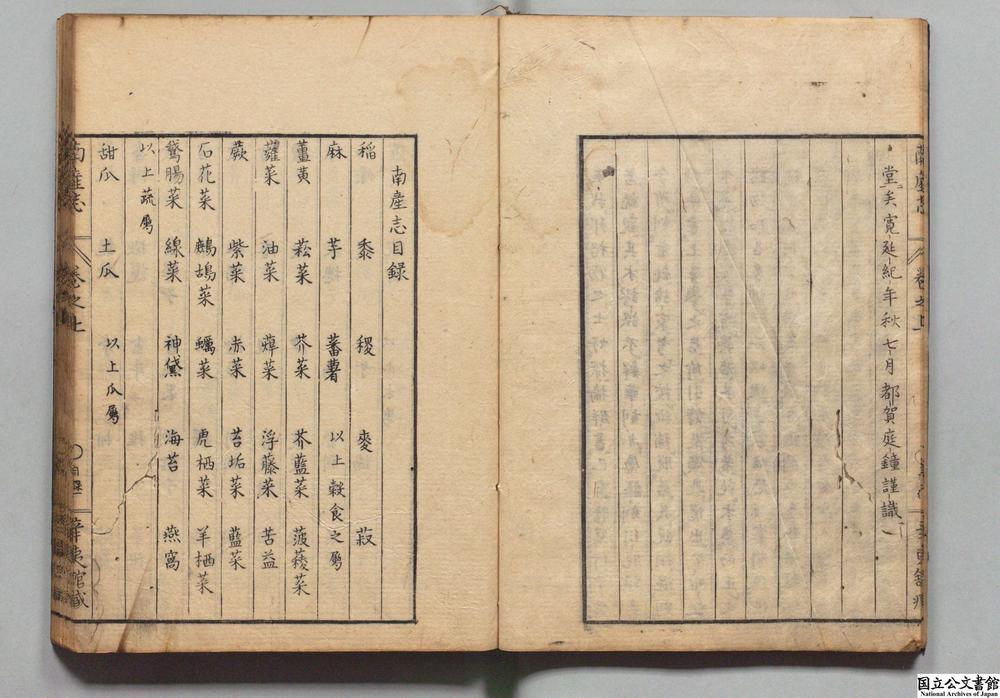 堂矣寛延紀年秋七月 都賀庭鐘謹識
南産志目録
稲 黍 稷 麥 菽
麻 芋 蕃薯 以上穀食之屬
薑黄 菘菜 芥菜 芥藍菜 菠薐菜
蕹菜 油菜 蔊菜 浮藤菜 苦益
蕨 紫菜 赤菜 苔垢菜 藍菜
石花菜 鷓鴣菜 蠣菜 虎栖菜 羊栖菜
鵞腸菜 線菜 神黛 海苔 燕窩
以上蔬屬
甜瓜 土瓜 以上瓜屬
南産志 卷之上
国立公文書館
National Archives of Japan